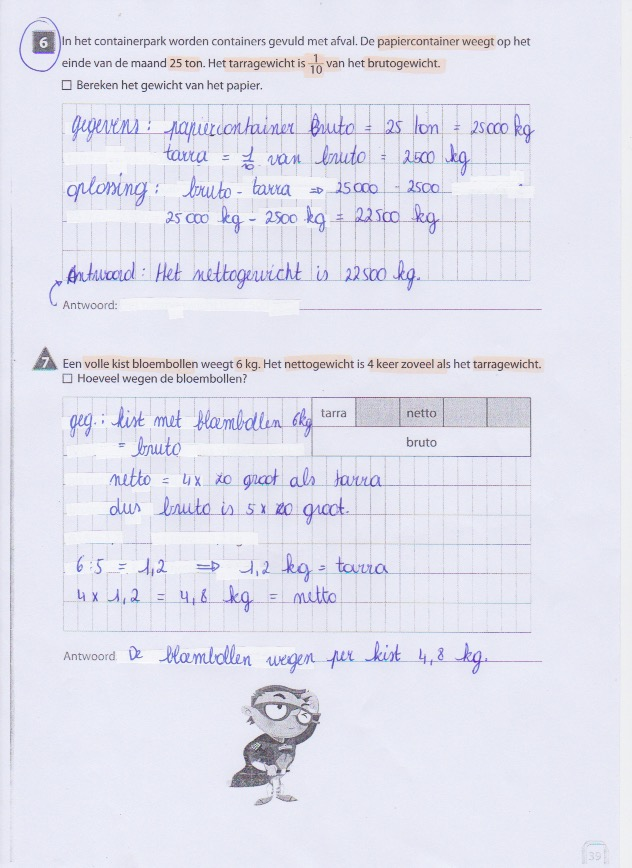 6 In het containerpark worden containers gevuld met afval. De papiercontainer weegt op het
einde van de maand 25 ton. Het tarragewicht is 1/10 van het brutogewicht.
☐ Bereken het gewicht van het papier.
gegevens : papiercontainer Bruto = 25 ton = 25000 kg
tarra = 1/10 van bruto = 2500 kg
oplossing : bruto - tarra ⇒ 25000 - 2500
25000 kg - 2500 kg = 22500 kg
Antwoord : Het nettogewicht is 22500 kg.
Antwoord:
7 Een volle kist bloembollen weegt 6 kg. Het nettogewicht is 4 keer zoveel als het tarragewicht.
☐ Hoeveel wegen de bloembollen?
geg. : kist met bloembollen 6kg
= bruto
tarra netto
bruto
netto = 4x zo groot als tarra
dus bruto is 5 x zo groot.
6 : 5 = 1,2 ⇒ 1,2 kg = tarra
4 x 1,2 = 4,8 kg = netto
Antwoord De bloembollen wegen per kist 4,8 kg.
39